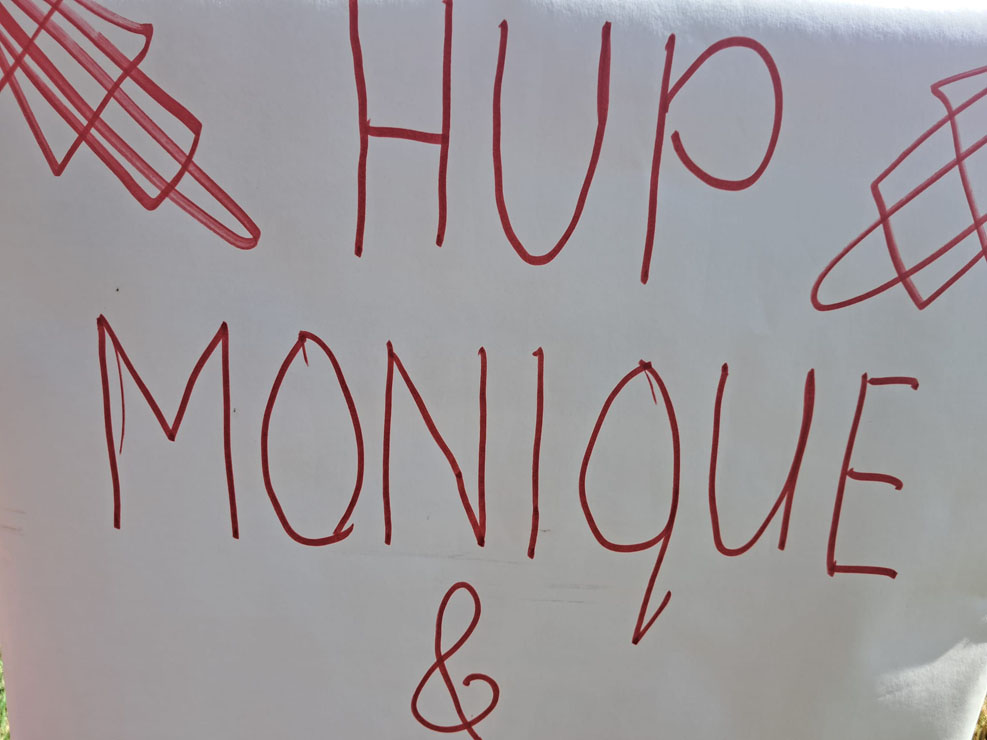 HUP
MONIQUE
&